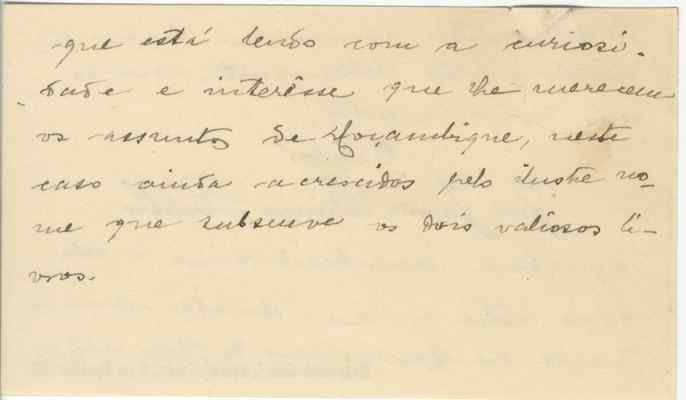 que está lendo com a curiosi-
dade e interêsse que lhe merecem
os assuntos de Moçambique, neste
caso ainda acrescidos pelo ilustre no-
me que subscreve os dois valiosos li-
vros.